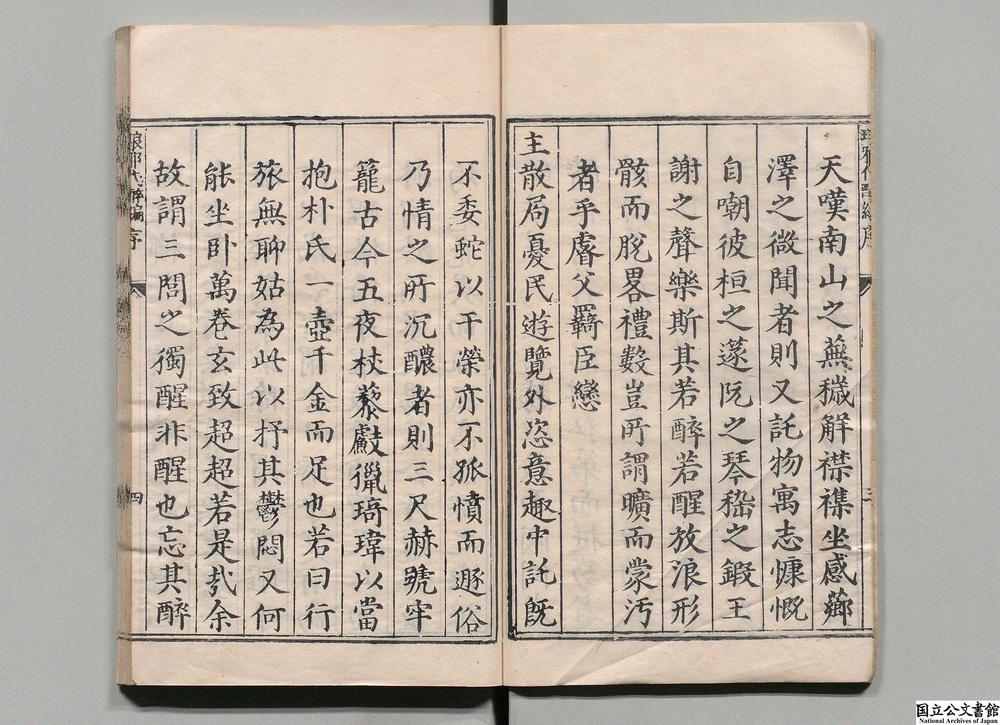 天嘆南山之蕪穢解襟襍坐感薌
澤之微聞者則又託物寓志慷慨
自嘲彼桓之邃阮之琴嵇之鍛王
謝之聲樂斯其若醉若醒放浪形
骸而脫畧禮數豈所謂曠而蒙汚
者乎睿父羇臣戀
主散局憂民遊覽外恣意趣中託旣
不委蛇以干榮亦不孤憤而遯俗
乃情之所沉醲者則三尺赫號牢
籠古今五夜杖藜𪉑獵琦瑋以當
抱朴氏一壺千金而足也若曰行
旅無聊姑為此以抒其鬱悶又何
能坐卧萬卷玄致超超若是㢤余
故謂三閭之獨醒非醒也忘其醉
琅邪代醉編序
四
三
国立公文書館
National Archives of Japan